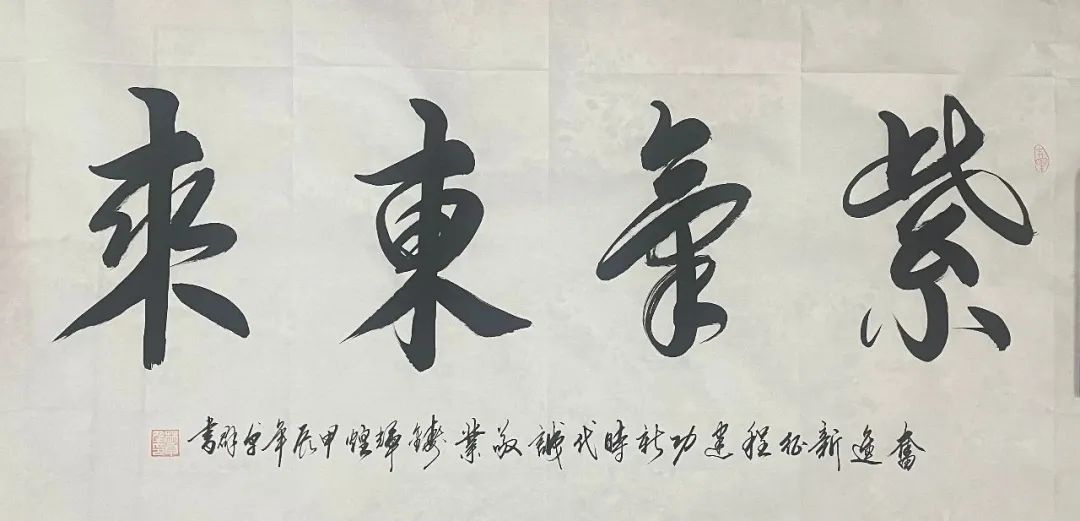 紫氣東來
奮進新征程建功新時代誠敬業鑄輝煌甲辰年學群書